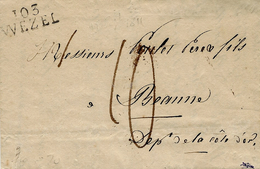 103
WEZEL
Messieurs Père & fils
10
a
Beaune
Dep.t de la côte d'or.